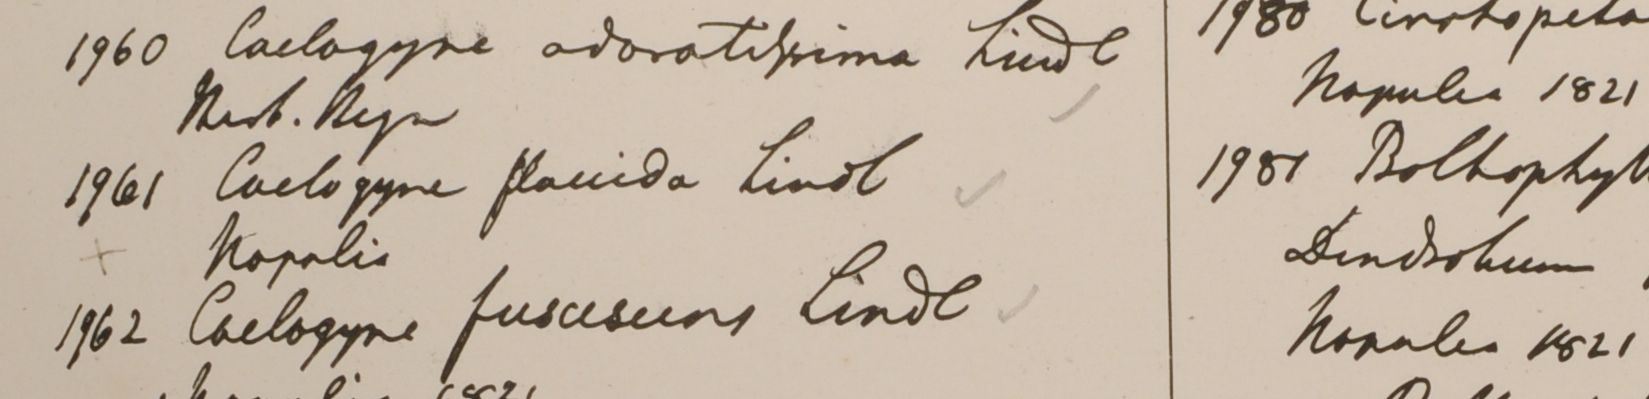 1960 Caelogyne odoratissima Lindl
Herb. Regn
1961 Caelogyne flaccida Lindl
Napalia
1962 Caelogyne fuscescens Lindl
1821
1980 Cirrhopeta
Napalia 1821
1981 Bolbophyll
Dendrobium
Napalia 1821